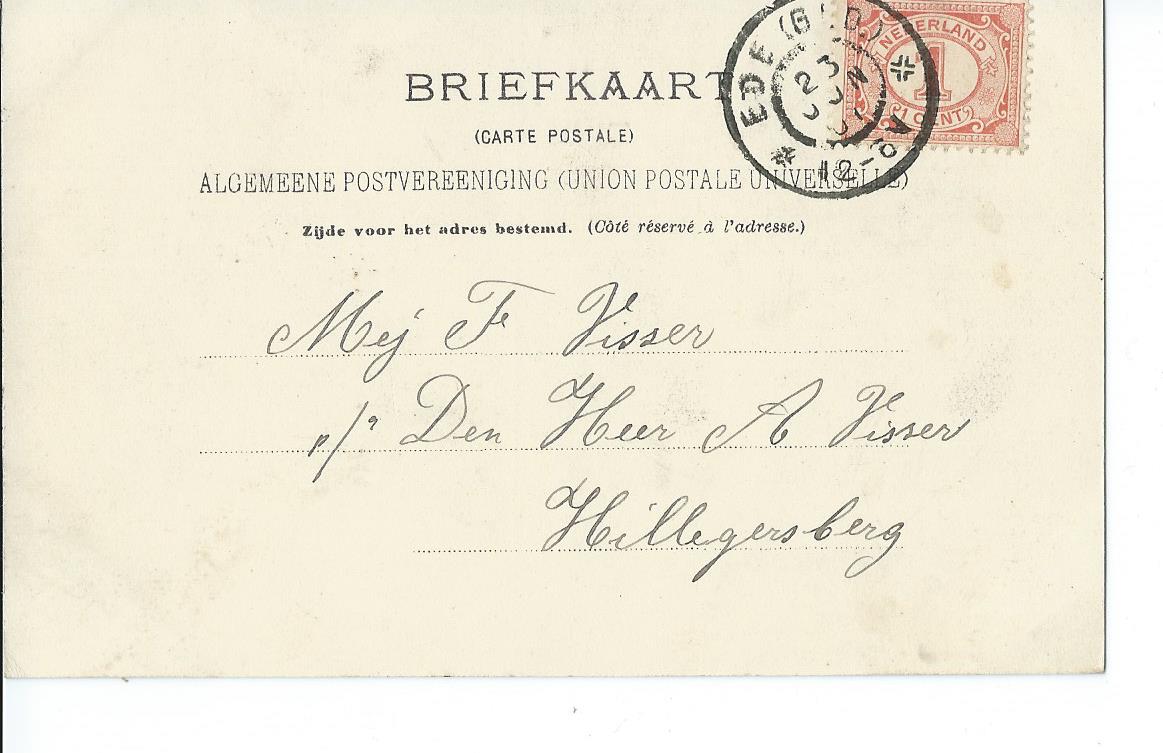 BRIEFKAART
(CARTE POSTALE)
ALGEMEENE POSTVEREENIGING (UNION POSTALE UNIVERSELLE)
Zijde voor het adres bestemd. (Côté réservé à l'adresse.)
NEDERLAND
1
1 CENT
EDE (GLD.)
23
JUN
01
12-6A
Mej F Visser
p/a Den Heer A Visser
Hillegersberg